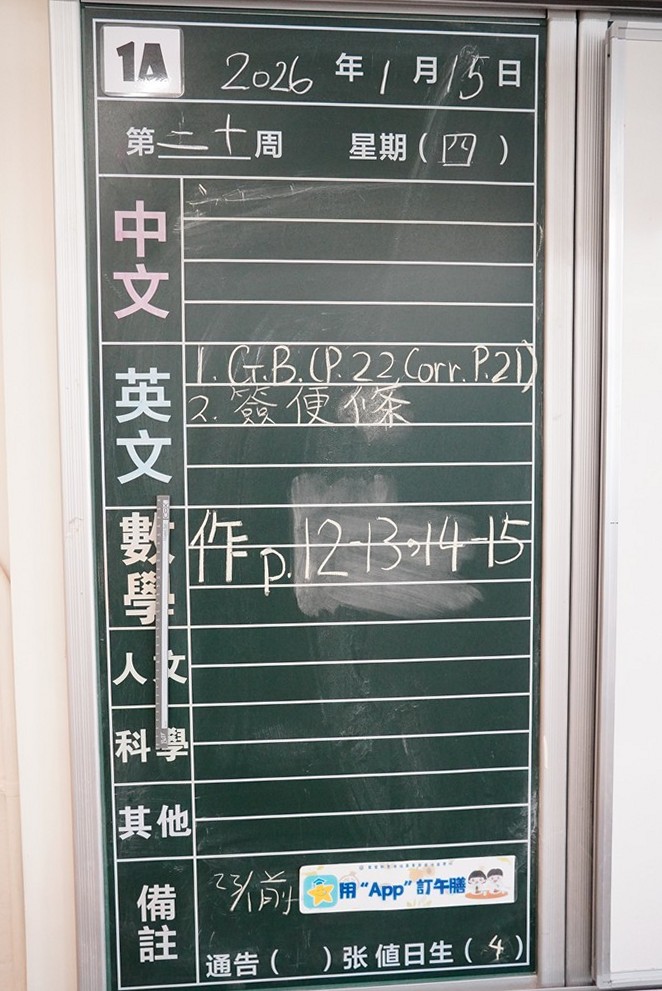 1A
2026年1月15日
第二十周 星期(四)
中文
英文
1. G.B. (P.22 Corr. P.21)
2. 簽便條
數學
作 p.12-13,14-15
人文
科學
其他
備註
23/1前
用“App”訂午膳
通告( )张 值日生(4)